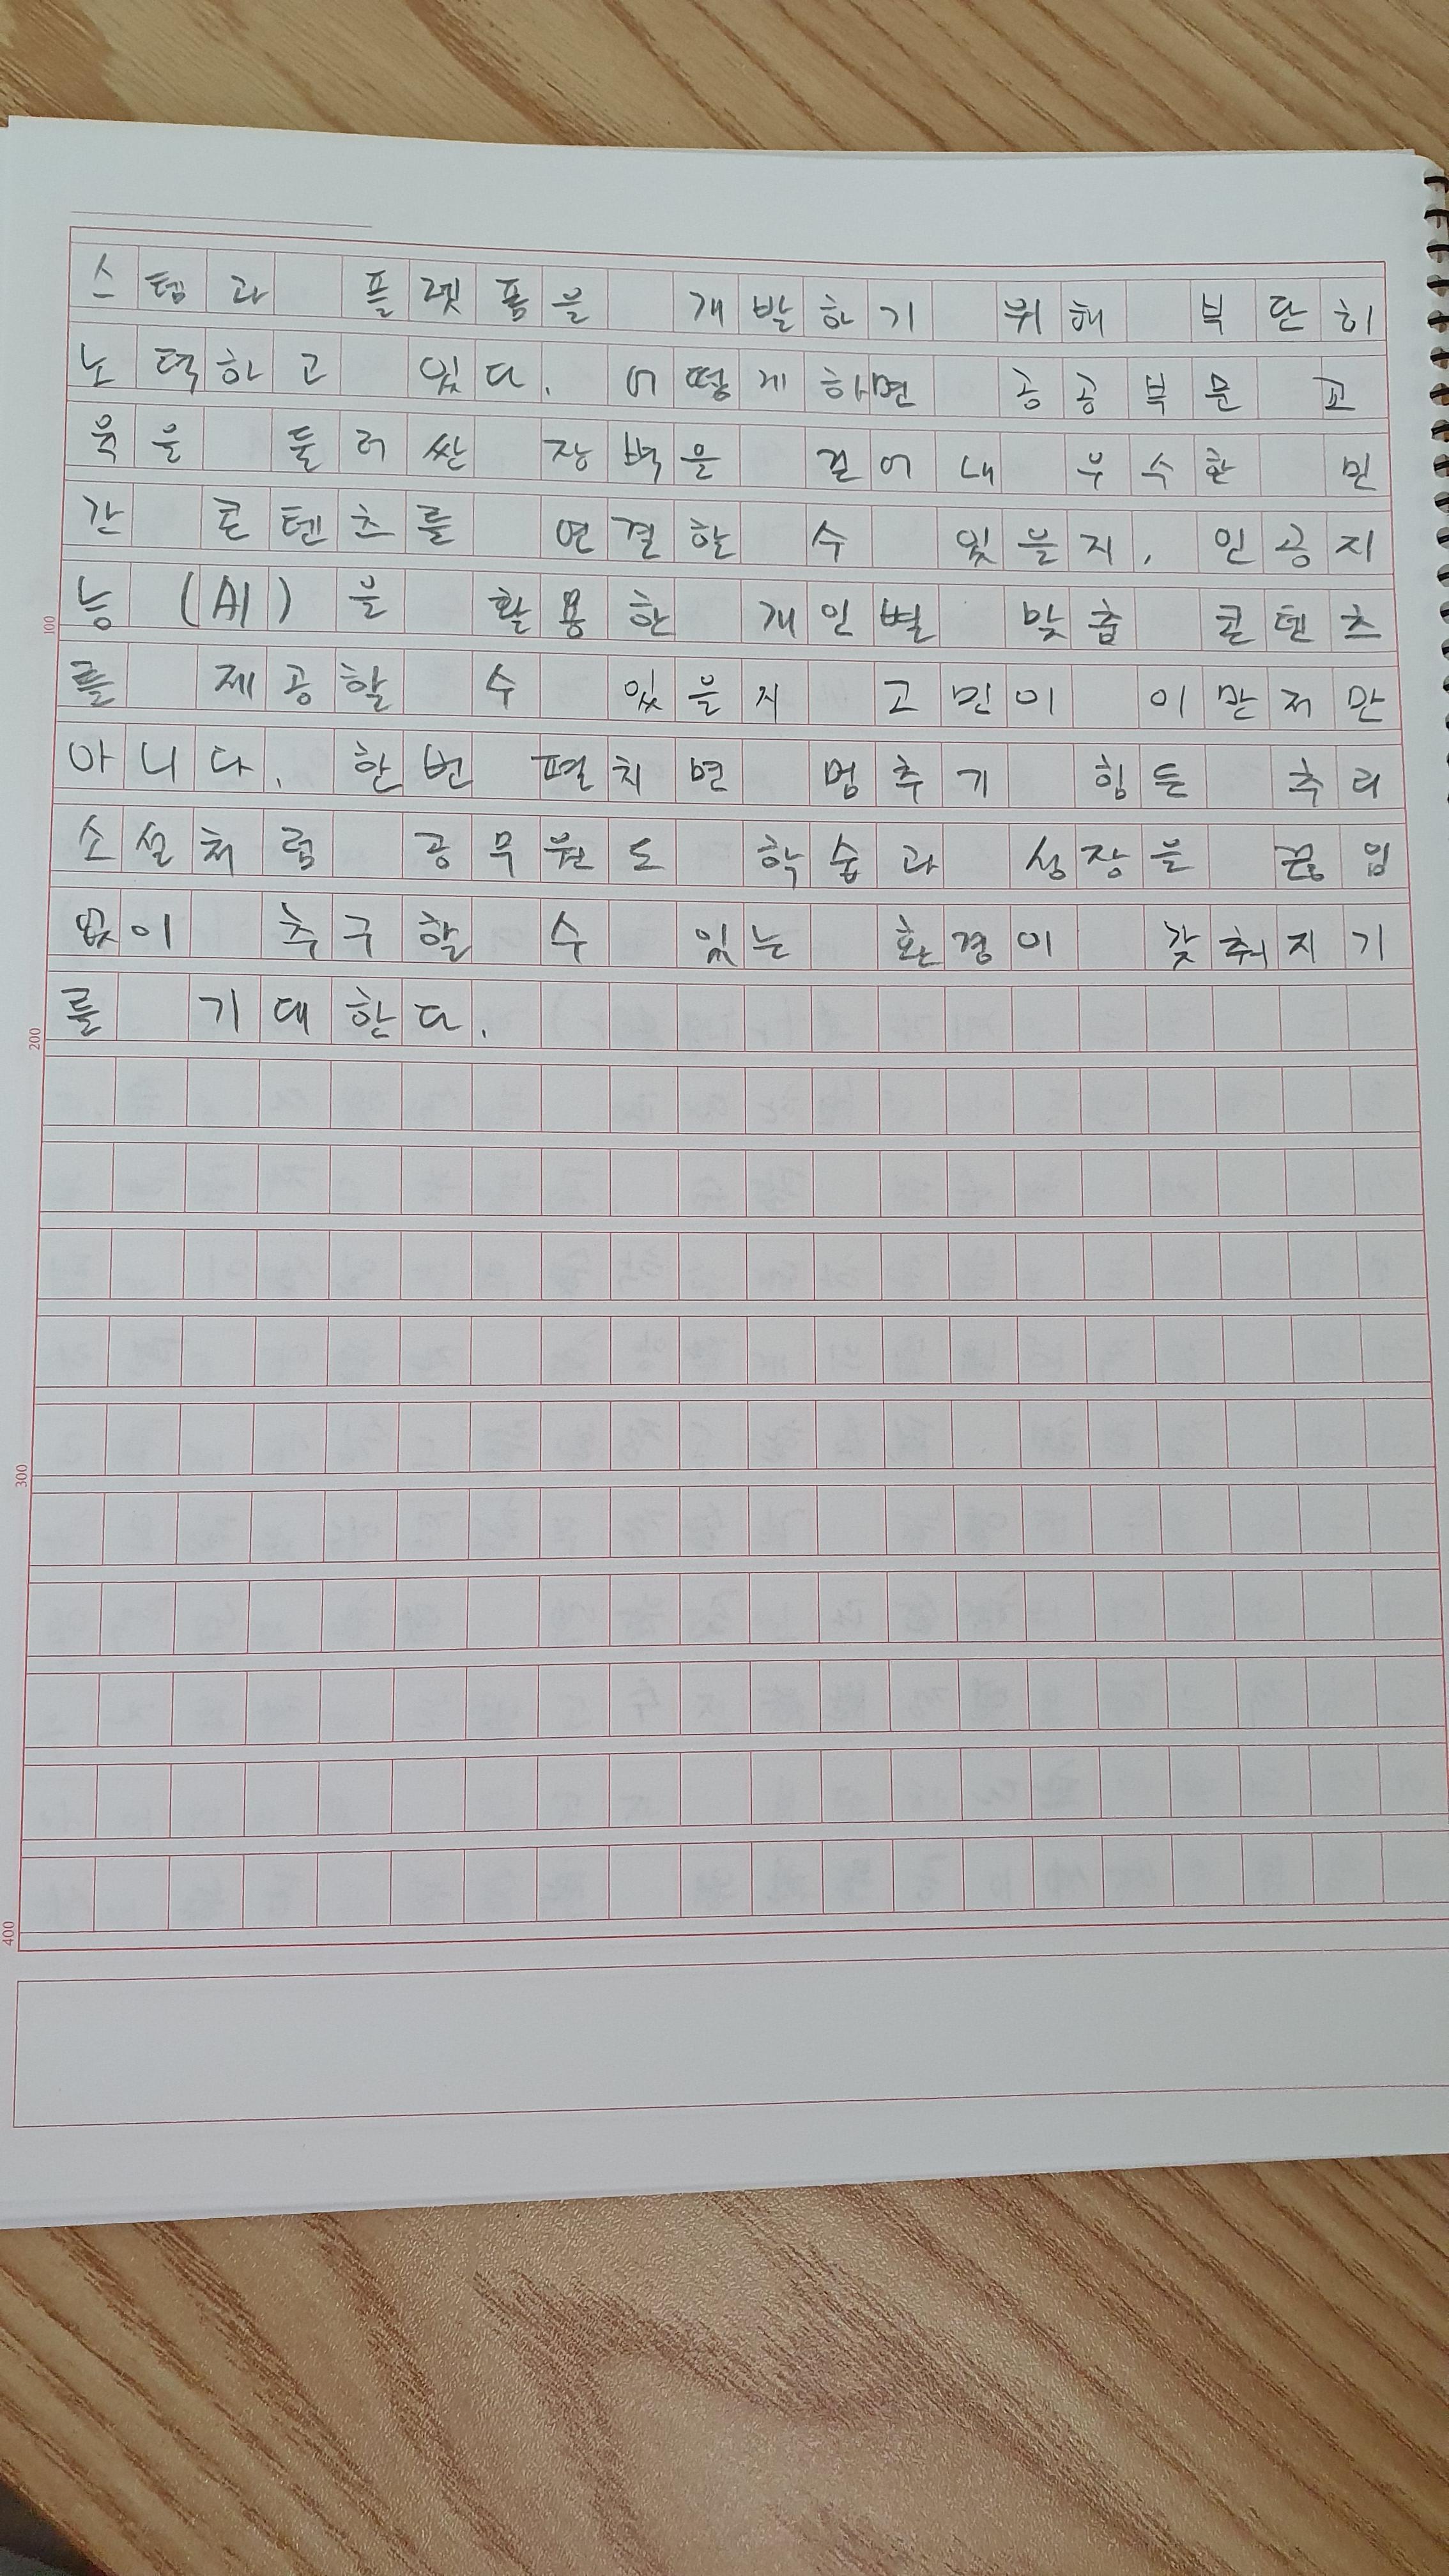 스템과 플렛폼을 개발하기 위해 부단히
노력하고 있다. 어떻게하면 공공부문 교
육을 둘러싼 장벽을 걷어내 우수한 민
간 콘텐츠를 연결할 수 있을지, 인공지
능 (AI) 을 활용한 개인별 맞춤 콘텐츠
를 제공할 수 있을지 고민이 이만저만
아니다. 한번 펼치면 멈추기 힘든 추리
소설처럼 공무원도 학습과 성장을 끊임
없이 추구할 수 있는 환경이 갖춰지기
를 기대한다.
100
200
300
400